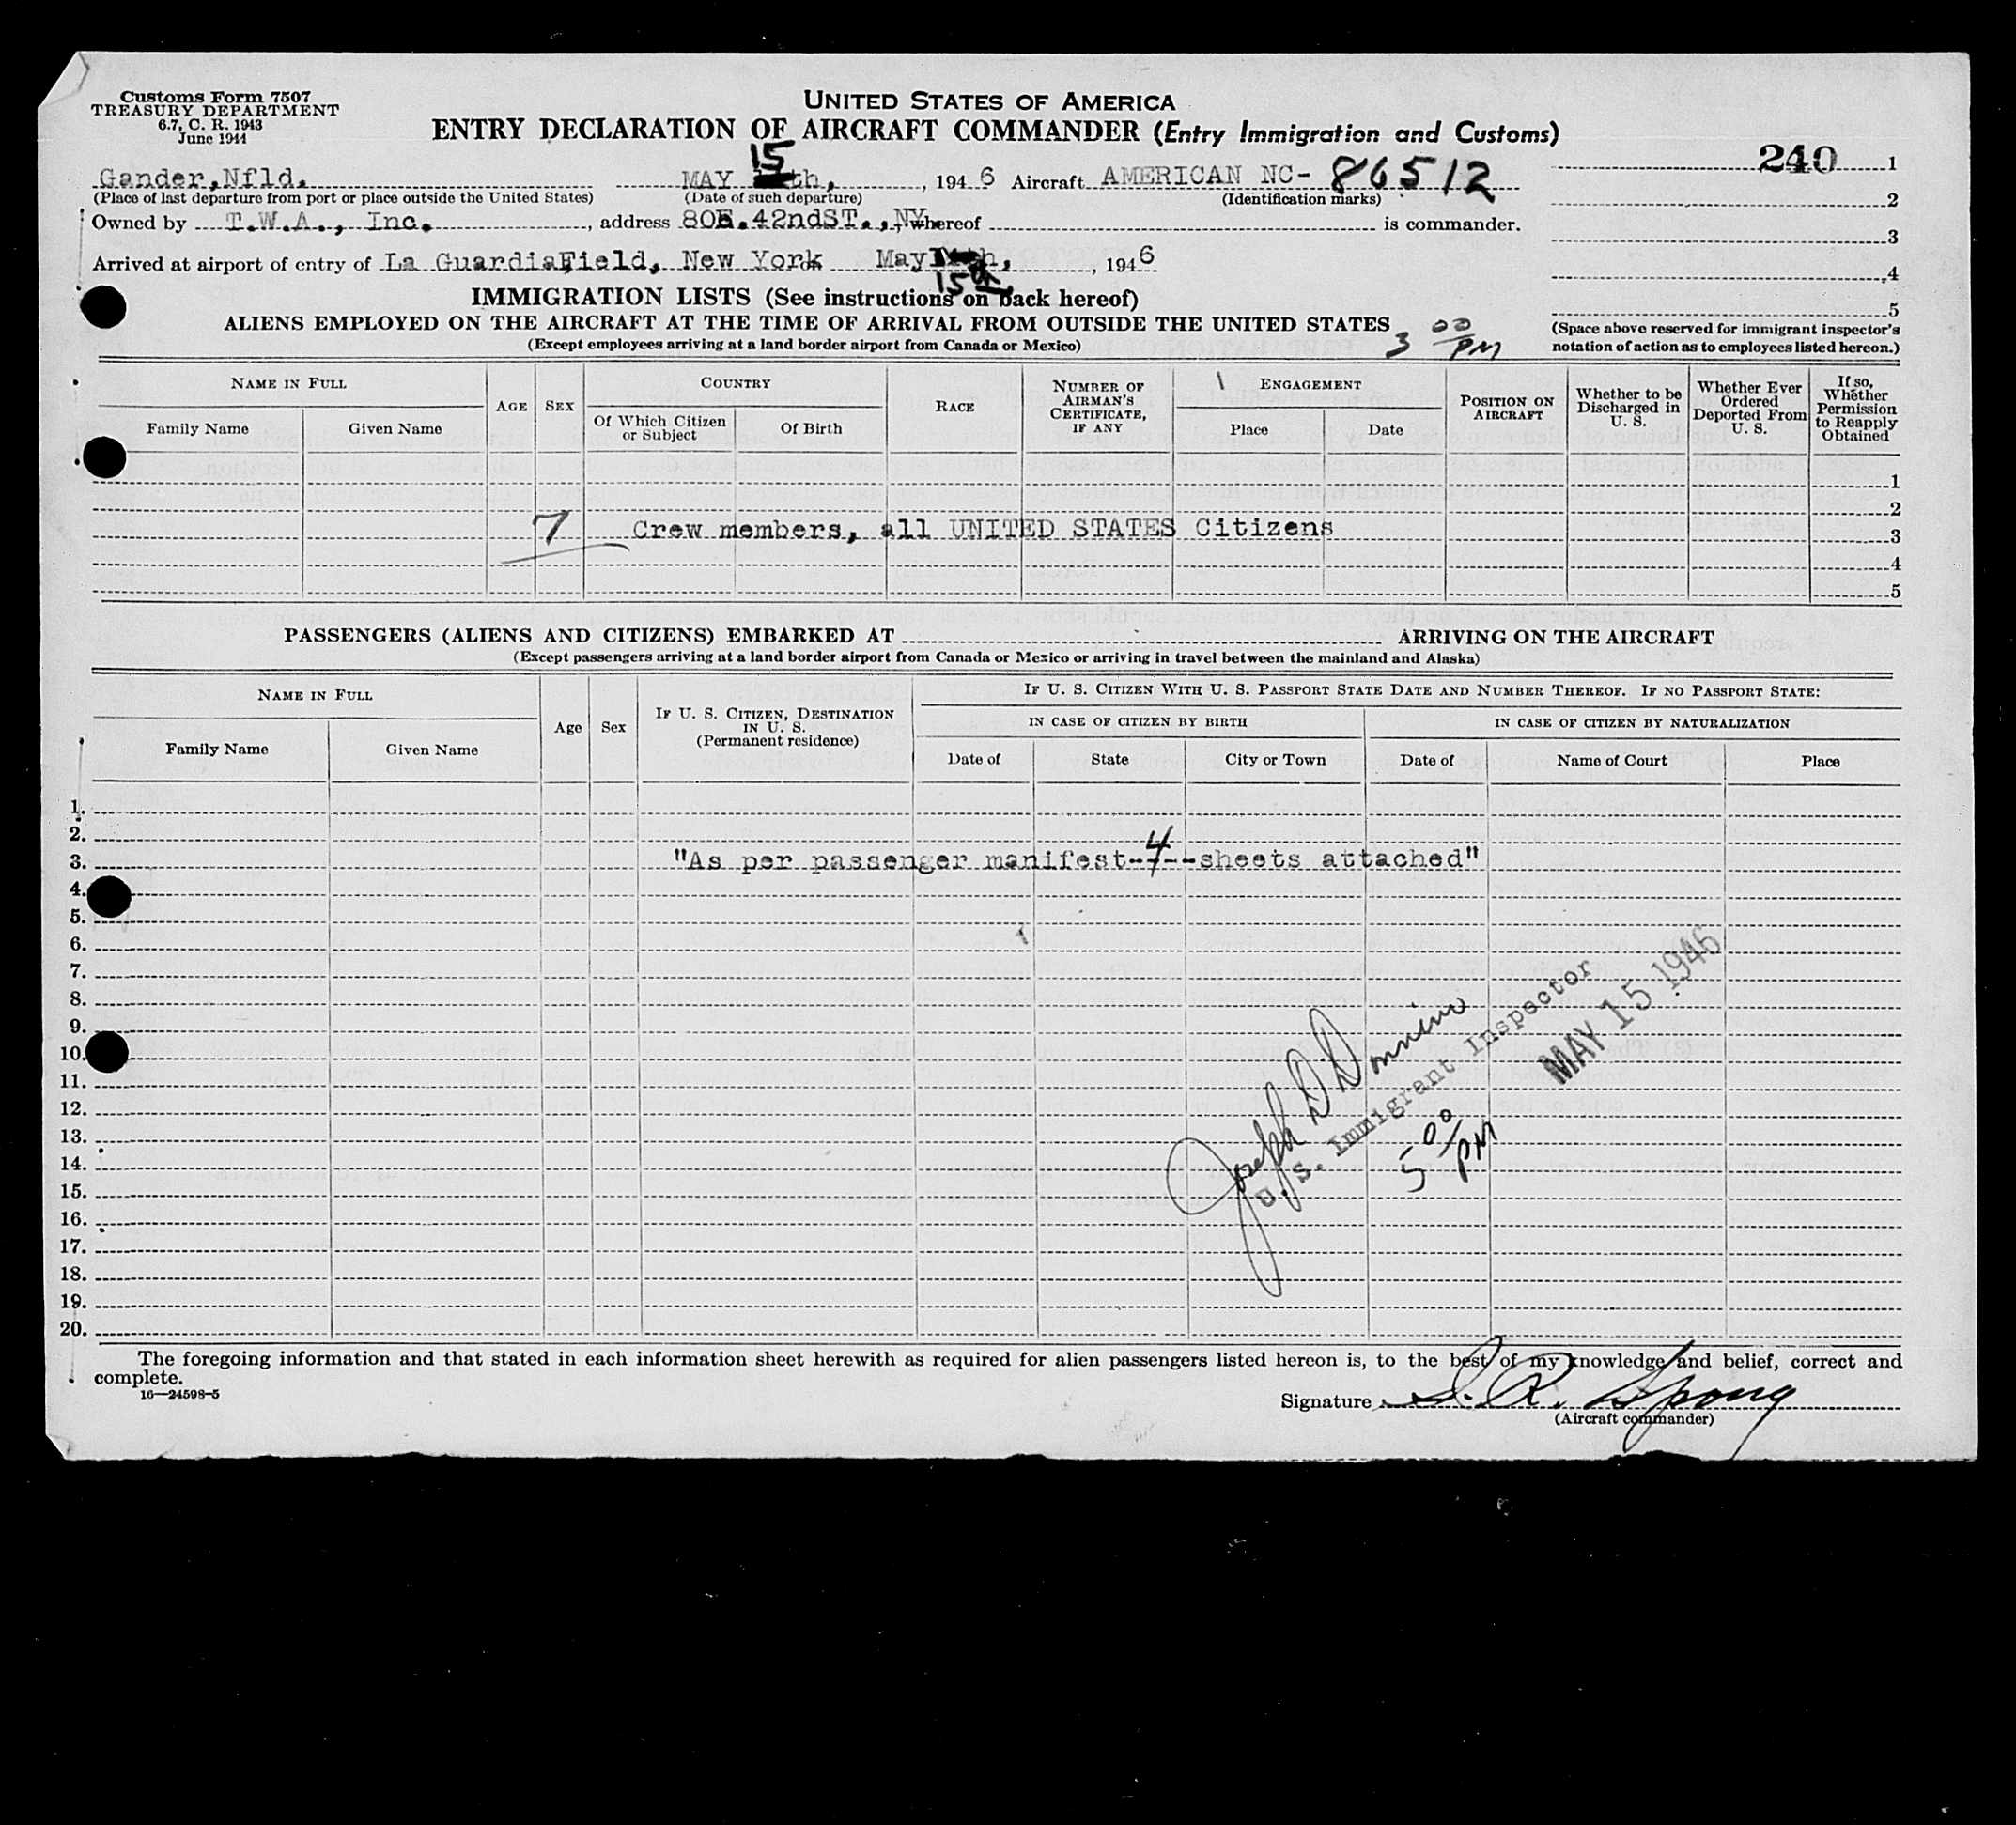 Customs Form 7507
TREASURY DEPARTMENT
6.7, C. R. 1943
June 1944
UNITED STATES OF AMERICA
ENTRY DECLARATION OF AIRCRAFT COMMANDER (Entry Immigration and Customs)
240 1
2
3
4
5
(Space above reserved for immigrant inspector's
notation of action as to employees listed hereon.)
15
Gander, Nfld. MAY th, , 194 6 Aircraft AMERICAN NC- 86512
(Place of last departure from port or place outside the United States) (Date of such departure) (Identification marks)
Owned by T.W.A., Inc. , address 80E. 42ndST., NY whereof is commander.
Arrived at airport of entry of La GuardiaField, New York May h, , 194 6
15th
IMMIGRATION LISTS (See instructions on back hereof)
ALIENS EMPLOYED ON THE AIRCRAFT AT THE TIME OF ARRIVAL FROM OUTSIDE THE UNITED STATES
(Except employees arriving at a land border airport from Canada or Mexico)
3 00/PM
NAME IN FULL
Family Name Given Name
AGE SEX
COUNTRY
Of Which Citizen or Subject Of Birth
RACE
NUMBER OF AIRMAN'S CERTIFICATE, IF ANY
ENGAGEMENT
Place Date
POSITION ON AIRCRAFT
Whether to be Discharged in U. S.
Whether Ever Ordered Deported From U. S.
If so, Whether Permission to Reapply Obtained
1
2
7 Crew members, all UNITED STATES Citizens 3
4
5
PASSENGERS (ALIENS AND CITIZENS) EMBARKED AT ARRIVING ON THE AIRCRAFT
(Except passengers arriving at a land border airport from Canada or Mexico or arriving in travel between the mainland and Alaska)
NAME IN FULL
Family Name Given Name
Age Sex
IF U. S. CITIZEN, DESTINATION IN U. S.
(Permanent residence)
IF U. S. CITIZEN WITH U. S. PASSPORT STATE DATE AND NUMBER THEREOF. IF NO PASSPORT STATE:
IN CASE OF CITIZEN BY BIRTH IN CASE OF CITIZEN BY NATURALIZATION
Date of State City or Town Date of Name of Court Place
1.
2.
3. "As per passenger manifest-4--sheets attached"
4.
5.
6.
7.
8.
9.
10.
11.
12.
13.
14.
15.
16.
17.
18.
19.
20.
Joseph D Donnino
U. S. Immigrant Inspector
MAY 15 1946
5 00/PM
The foregoing information and that stated in each information sheet herewith as required for alien passengers listed hereon is, to the best of my knowledge and belief, correct and
complete.
16—24598-5
Signature S. R. Spong
(Aircraft commander)